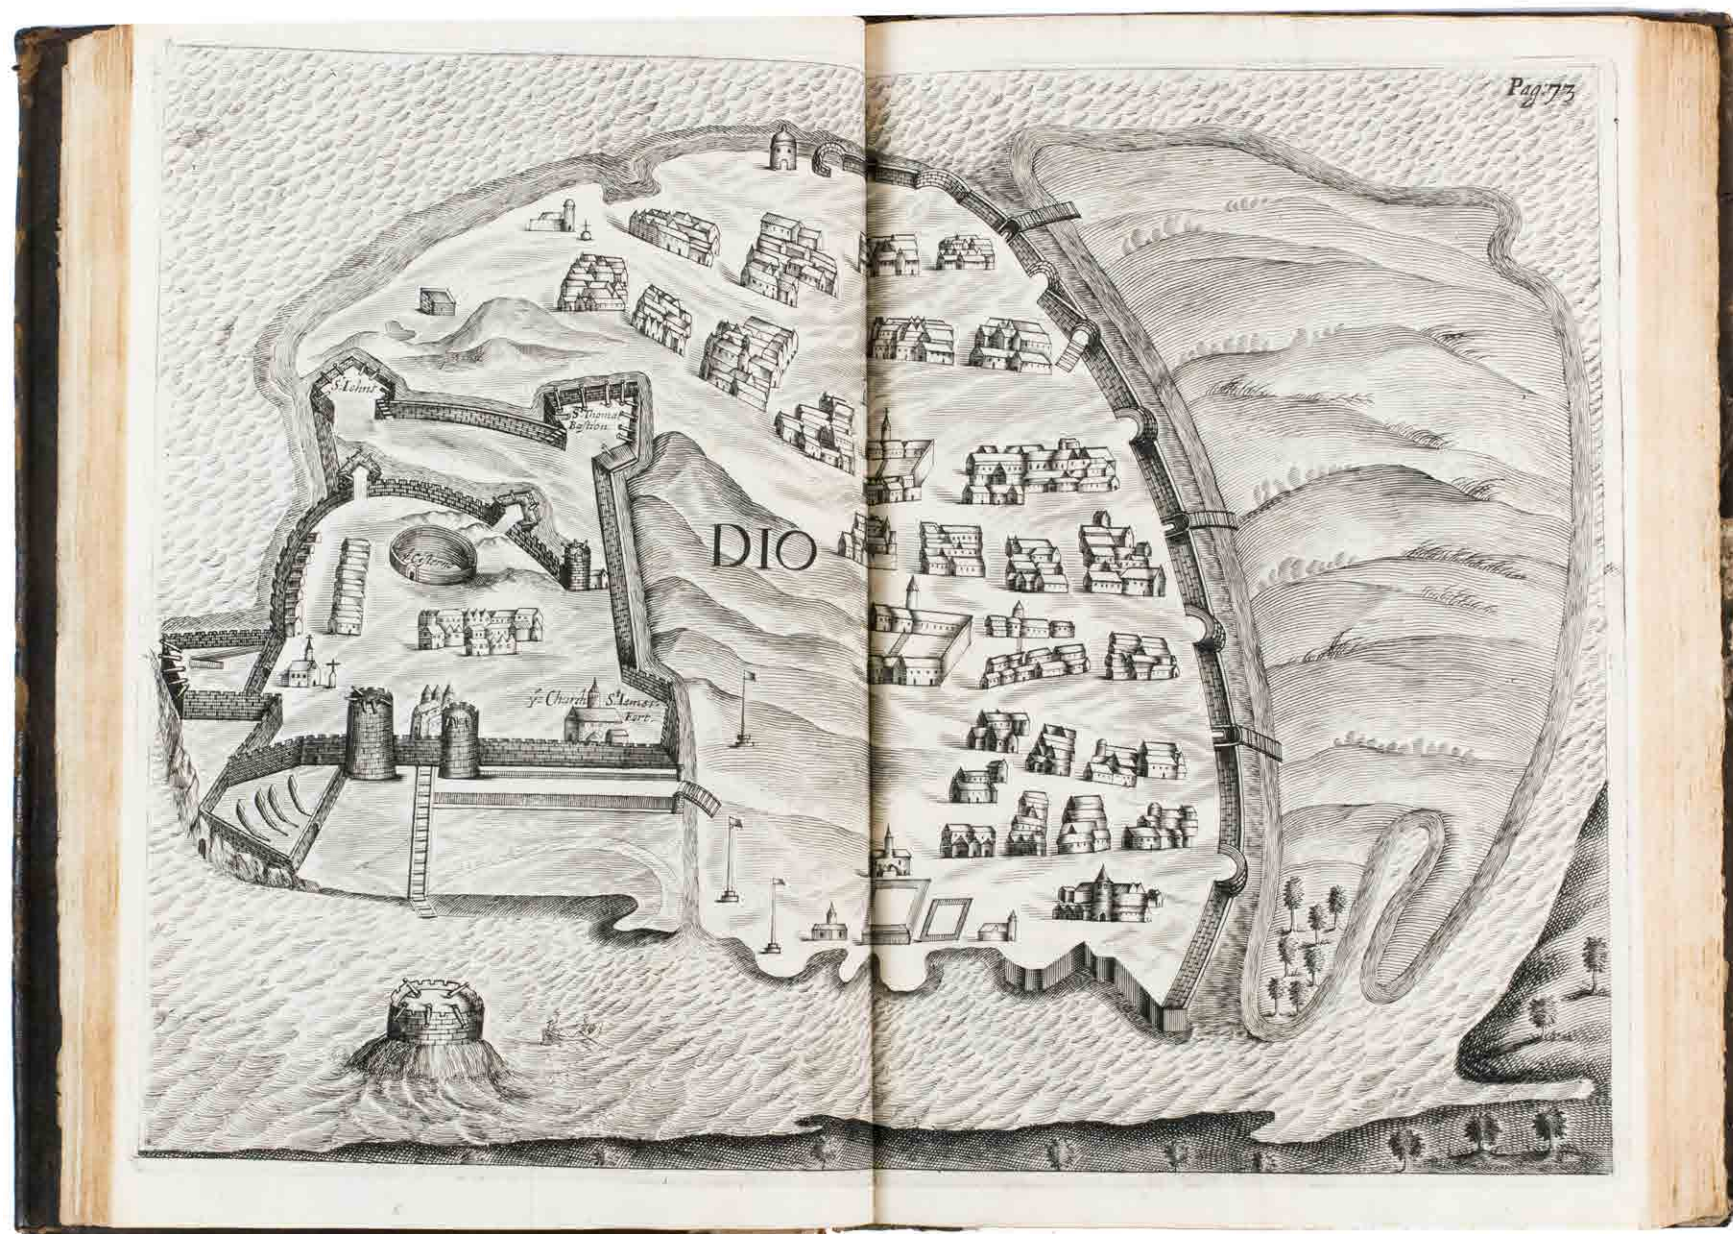 Pag: 73
St. Iohns
St. Thomas
Bastion
DIO
Cisterne
ye Church
St. Iames
Fort.